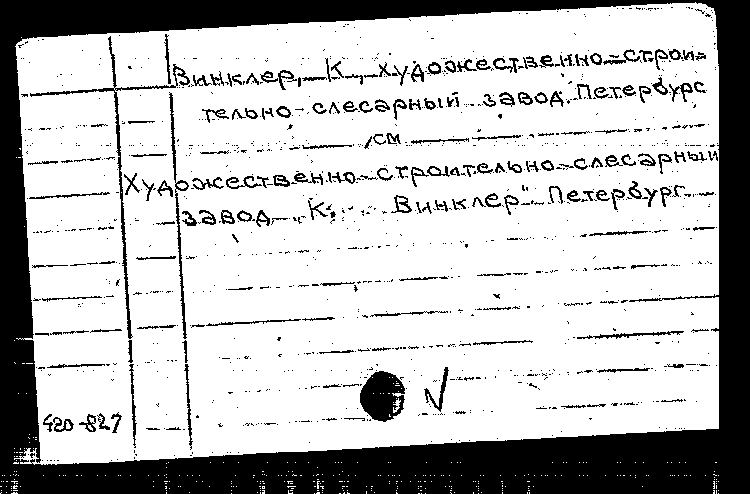 Винклер, К., художественно-строи-
тельно-слесарный завод. Петербург
см
Художественно-строительно-слесарный
завод „К. Винклер" Петербург.
420-827